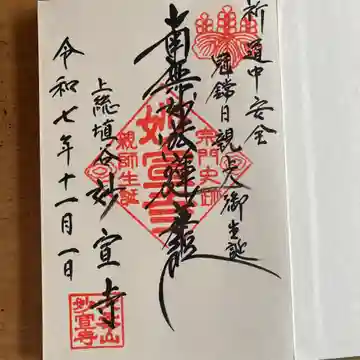 祈道中安全
冠鐺日親上人御生誕
南無妙法蓮華経
上総埴谷妙宣寺
令和七年十一月一日
宗門史跡
妙宣寺
親師生誕
妙宣寺